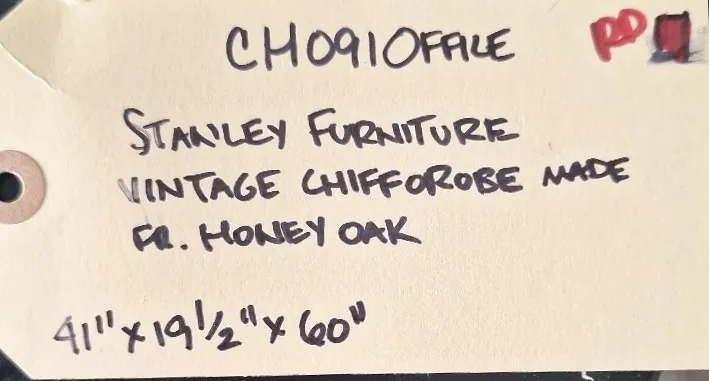 CH0910FFILE
RD
STANLEY FURNITURE
VINTAGE CHIFFOROBE MADE
FR. HONEY OAK
41" x 19 1/2" x 60"